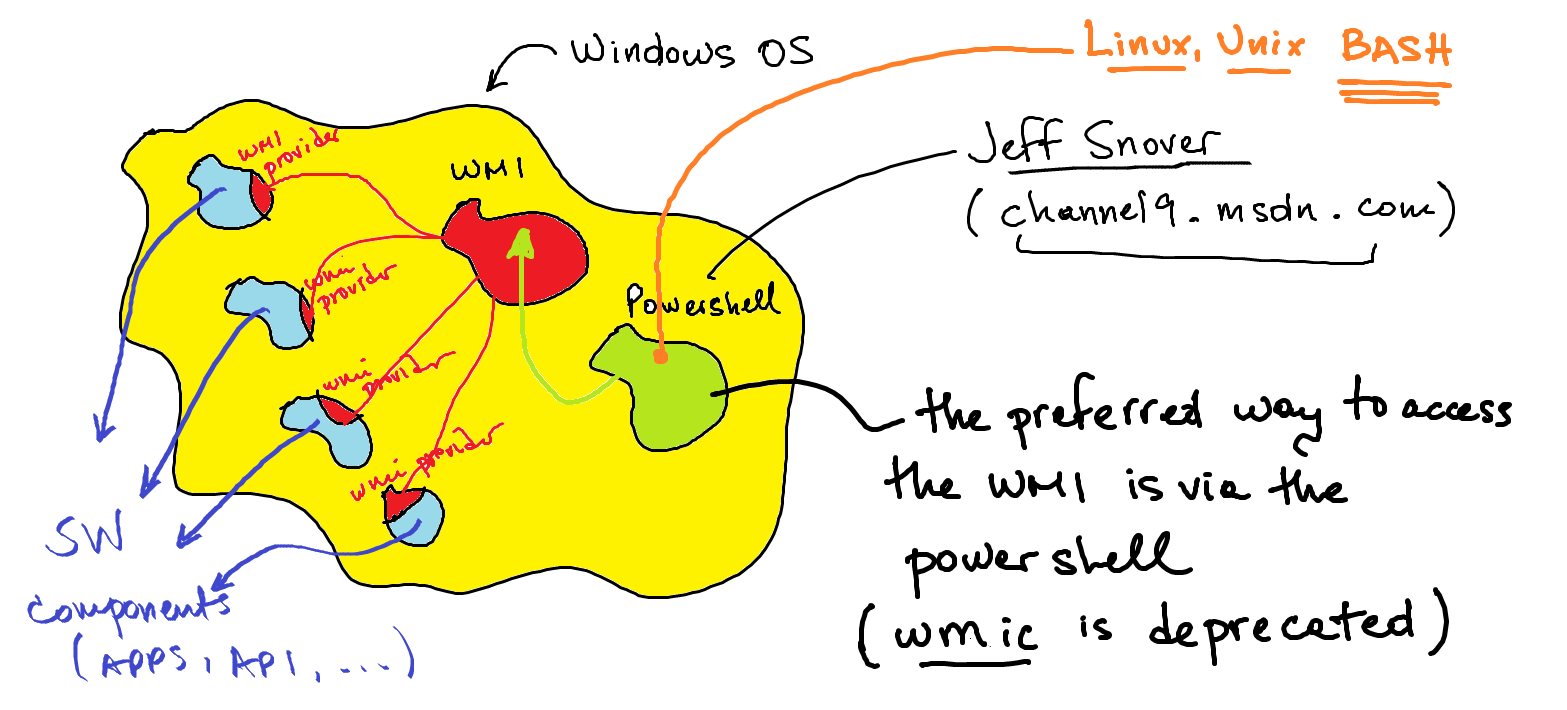 Windows OS
Linux, Unix BASH
Jeff Snover
(channel9.msdn.com)
WMI provider
WMI
wmi provider
Powershell
wmi provider
wmi provider
the preferred way to access
the WMI is via the
power shell
(wmic is deprecated)
SW
components
(APPS, API, ...)